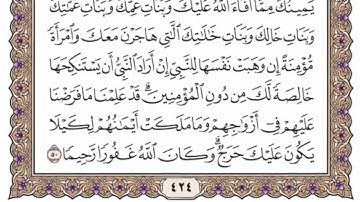 يَمِينُكَ مِمَّآ أَفَآءَ ٱللَّهُ عَلَيۡكَ وَبَنَاتِ عَمِّكَ وَبَنَاتِ عَمَّٰتِكَ
وَبَنَاتِ خَالِكَ وَبَنَاتِ خَٰلَٰتِكَ ٱلَّٰتِي هَاجَرۡنَ مَعَكَ وَٱمۡرَأَةٗ
مُّؤۡمِنَةً إِن وَهَبَتۡ نَفۡسَهَا لِلنَّبِيِّ إِنۡ أَرَادَ ٱلنَّبِيُّ أَن يَسۡتَنكِحَهَا
خَالِصَةٗ لَّكَ مِن دُونِ ٱلۡمُؤۡمِنِينَۗ قَدۡ عَلِمۡنَا مَا فَرَضۡنَا
عَلَيۡهِمۡ فِيٓ أَزۡوَٰجِهِمۡ وَمَا مَلَكَتۡ أَيۡمَٰنُهُمۡ لِكَيۡلَا
يَكُونَ عَلَيۡكَ حَرَجٞۗ وَكَانَ ٱللَّهُ غَفُورٗا رَّحِيمٗا ٥٠
٤٢٤